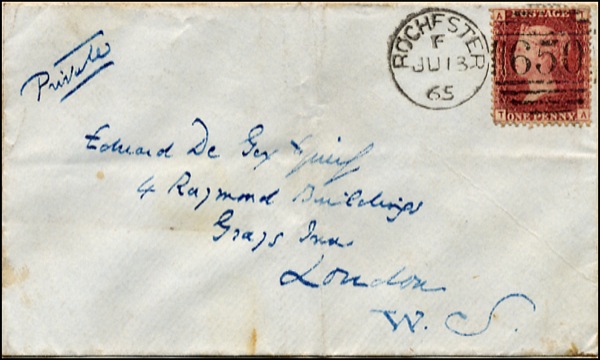 Private
ROCHESTER
F
JU 13
65
A POSTAGE
650
T ONE PENNY A
Edward De Gex
4 Raymond Buildings
Grays Inn
London
W. S.